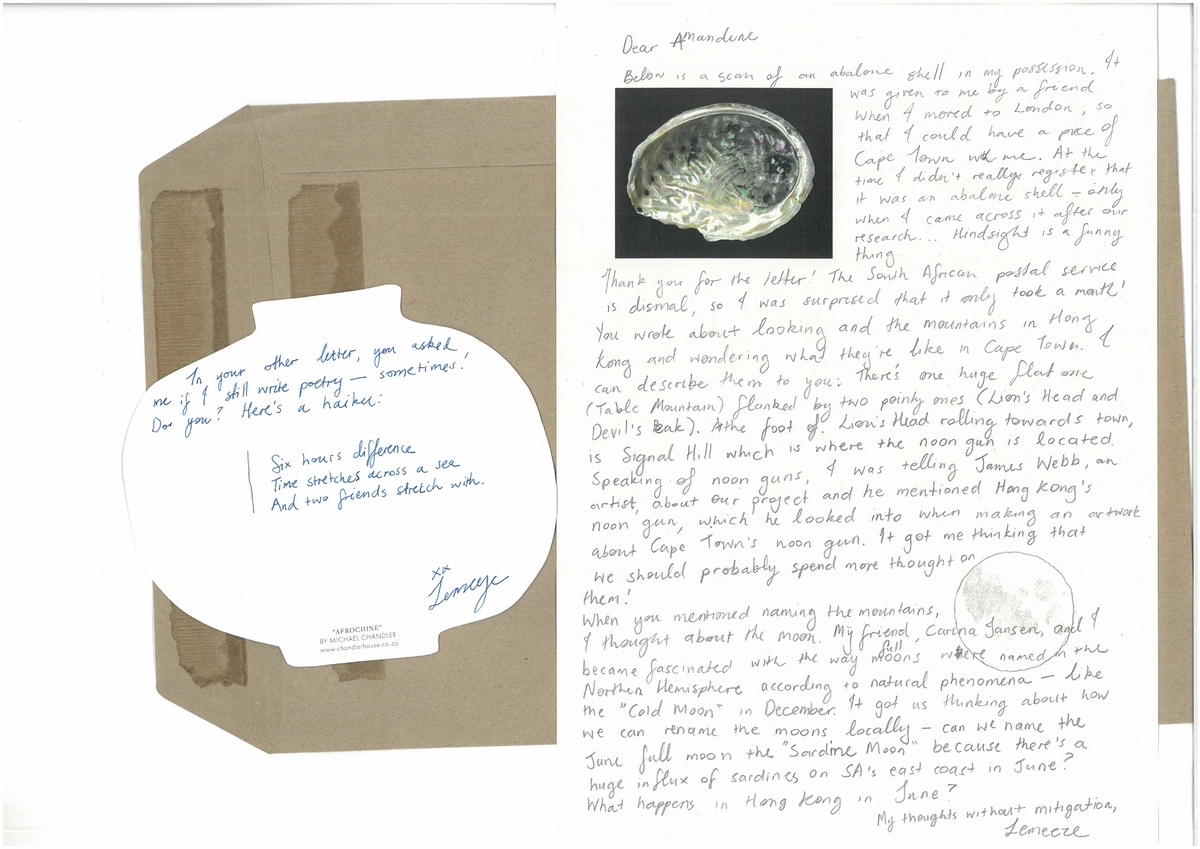 In your other letter, you asked
me if I still write poetry — sometimes!
Do you? Here's a haiku:
Six hours difference
Time stretches across a sea
And two friends stretch with.
xx
Lemeeze
"AFROCHINE"
BY MICHAEL CHANDLER
www.chandlerhouse.co.za
Dear Amandine
Below is a scan of an abalone shell in my possession. It
was given to me by a friend
when I moved to London, so
that I could have a piece of
Cape Town with me. At the
time I didn't really register that
it was an abalone shell – only
when I came across it after our
research... Hindsight is a funny
thing.
Thank you for the letter! The South African postal service
is dismal, so I was surprised that it only took a month!
You wrote about looking and the mountains in Hong
Kong and wondering what they're like in Cape Town. I
can describe them to you: There's one huge flat one
(Table Mountain) flanked by two pointy ones (Lion's Head and
Devil's Peak). At the foot of Lion's Head rolling towards town,
is Signal Hill which is where the noon gun is located.
Speaking of noon guns, I was telling James Webb, an
artist, about our project and he mentioned Hong Kong's
noon gun, which he looked into when making an artwork
about Cape Town's noon gun. It got me thinking that
we should probably spend more thought on
them!
When you mentioned naming the mountains,
I thought about the moon. My friend, Carina Jansen, and I
became fascinated with the way full moons were named in the
Northen Hemisphere according to natural phenomena – like
the "Cold Moon" in December. It got us thinking about how
we can rename the moons locally – can we name the
June full moon the "Sardine Moon" because there's a
huge influx of sardines on SA's east coast in June?
What happens in Hong Kong in June?
My thoughts without mitigation,
Lemeeze